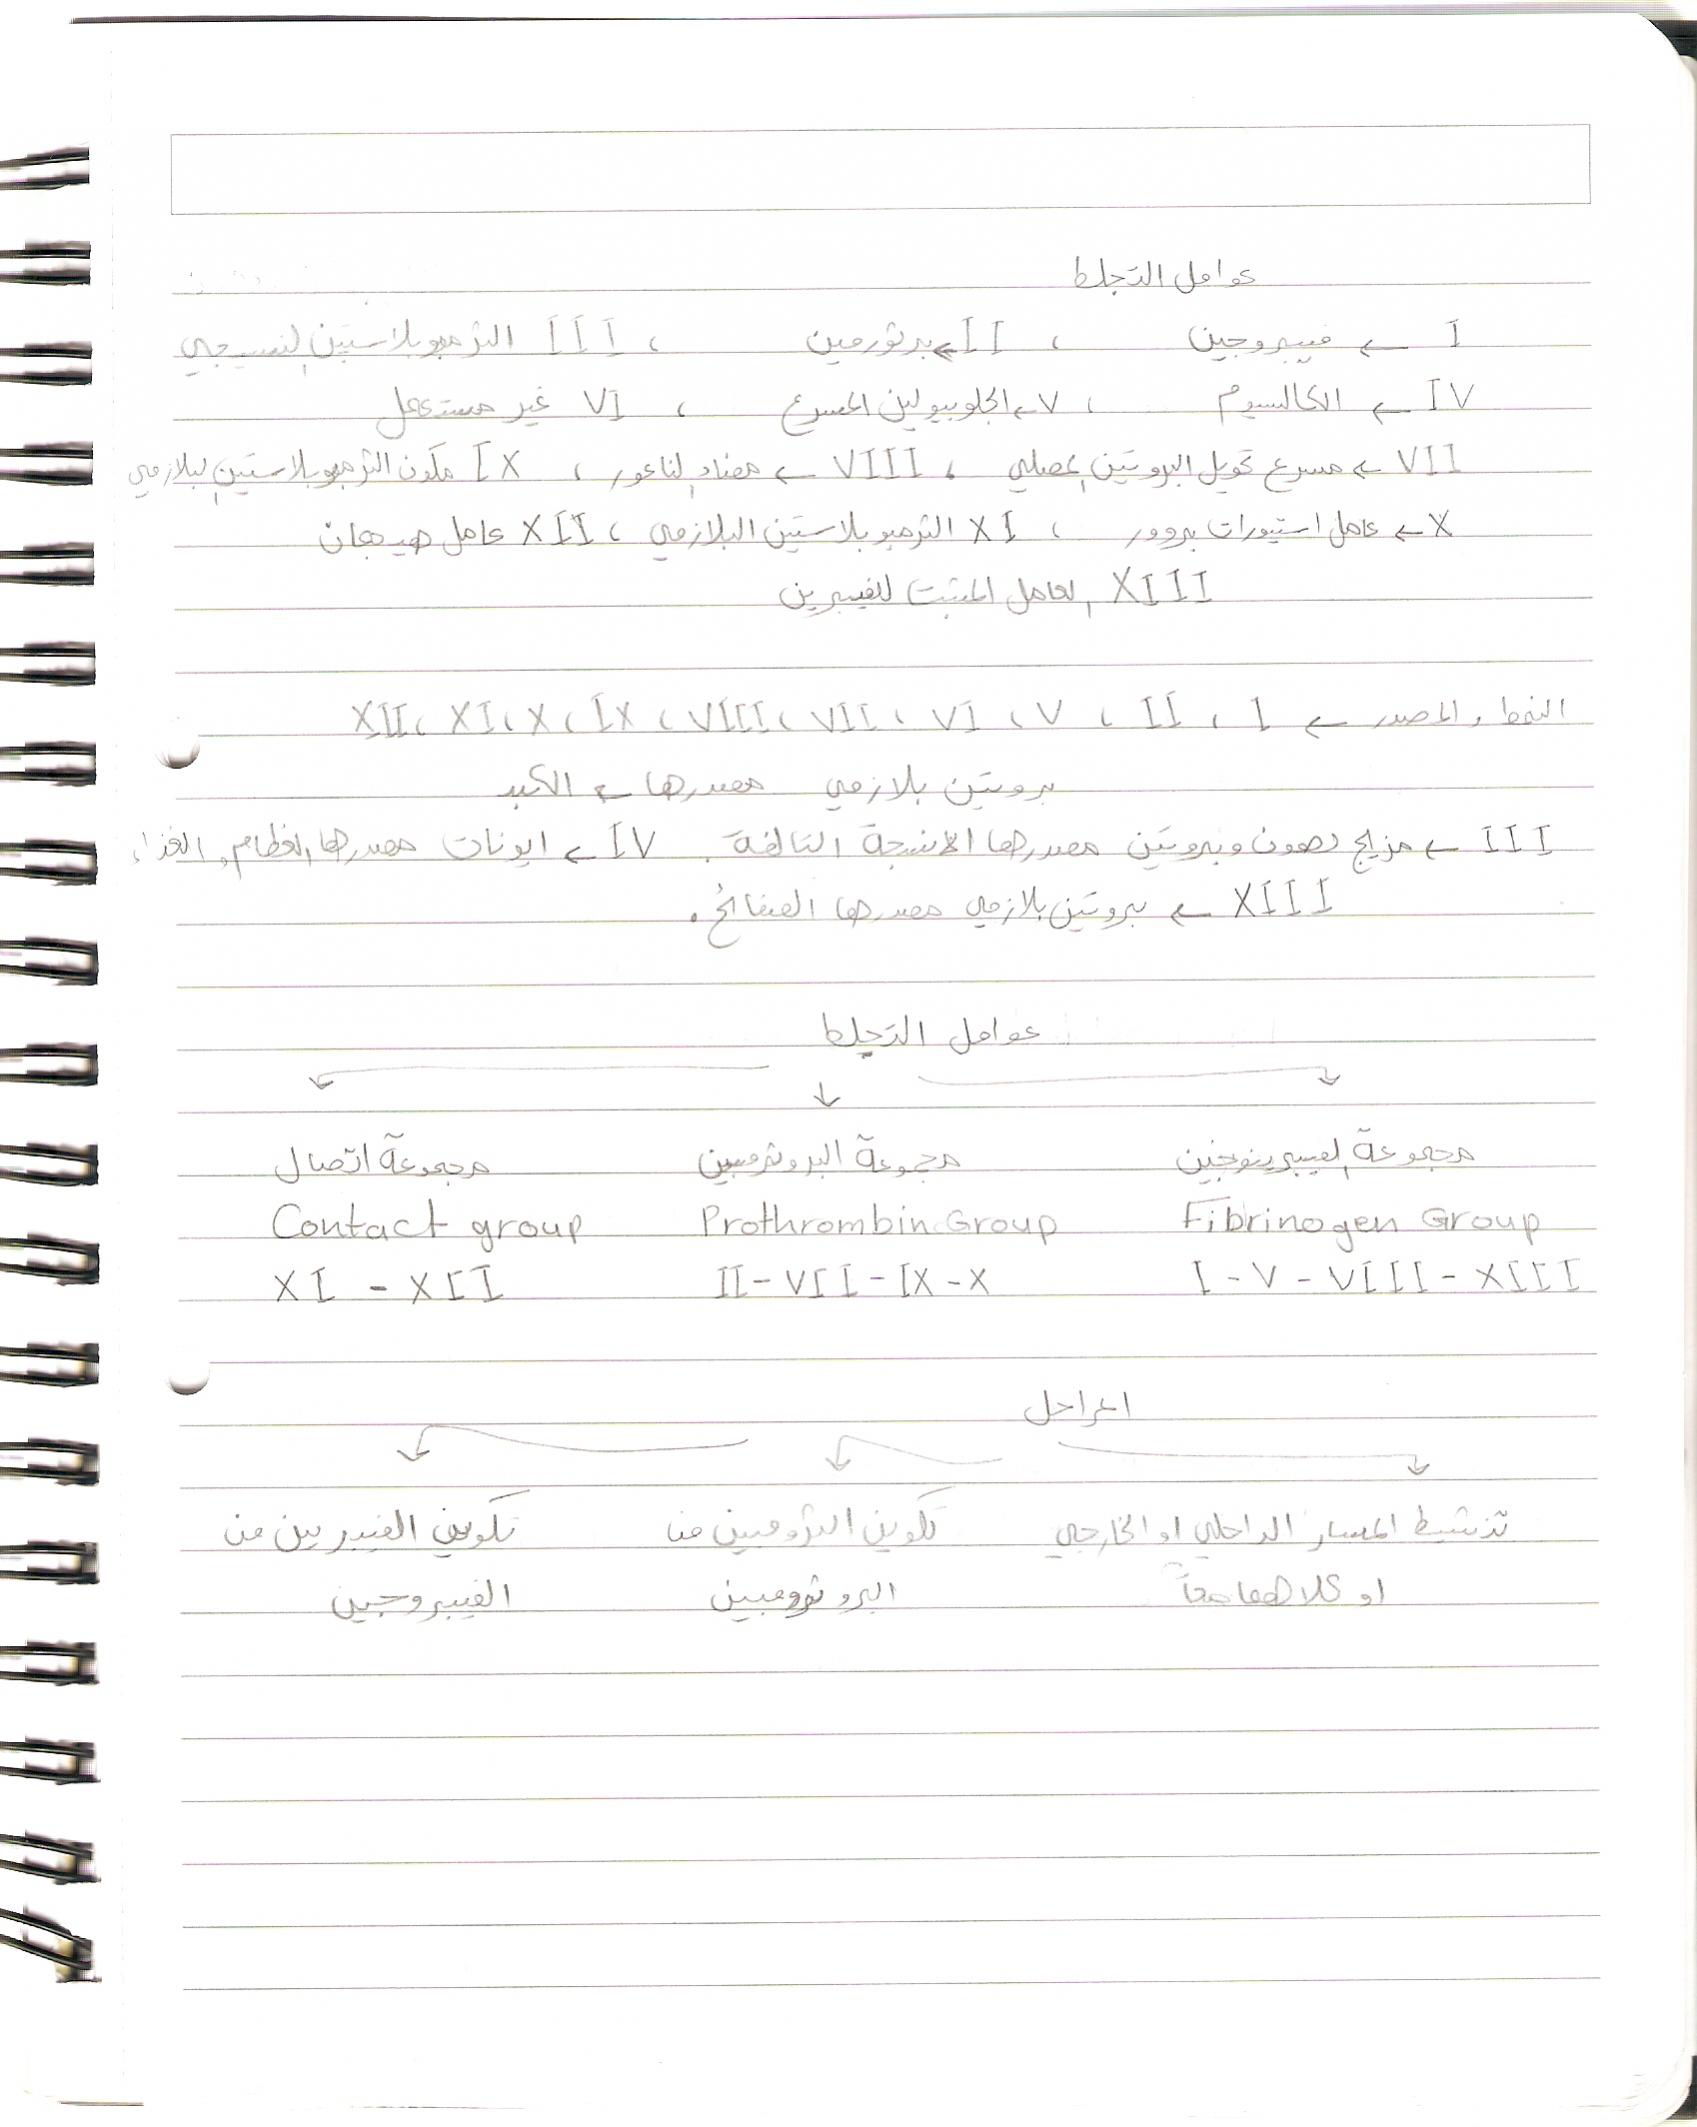 عوامل التجلط
I ← فيبروجين ، II ← برثورمين ، III الثرمبوبلاستين النسيجي
IV ← الكالسيوم ، V ← الجلوبيولين المسرع ، VI غير مستعمل
VII ← مسرع تحويل البروتين المصلي ، VIII ← مضاد الناعور ، IX مكون الثرمبوبلاستين البلازمي
X ← عامل استيورات بروور ، XI الثرمبوبلاستين البلازمي ، XII عامل هيجمان
XIII العامل المثبت للفيبرين
النمط والمصدر ← I ، II ، V ، VI ، VII ، VIII ، IX ، X ، XI ، XII
بروتين بلازمي مصدرها ← الكبد
III ← مزيج دهون وبروتين مصدرها الأنسجة التالفة . IV ← ايونات مصدرها العظام والغذاء
XIII ← بروتين بلازمي مصدرها الصفائح .
عوامل التجلط
مجموعة الفيبرينوجين مجموعة البروثرومبين مجموعة اتصال
Fibrinogen Group Prothrombin Group Contact group
I - V - VIII - XIII II - VII - IX - X XI - XII
المراحل
تنشيط المسار الداخلي او الخارجي تكوين الثرومبين من تكوين الفيبرين من
او كلاهما معاً البروثرومبين الفيبروجين